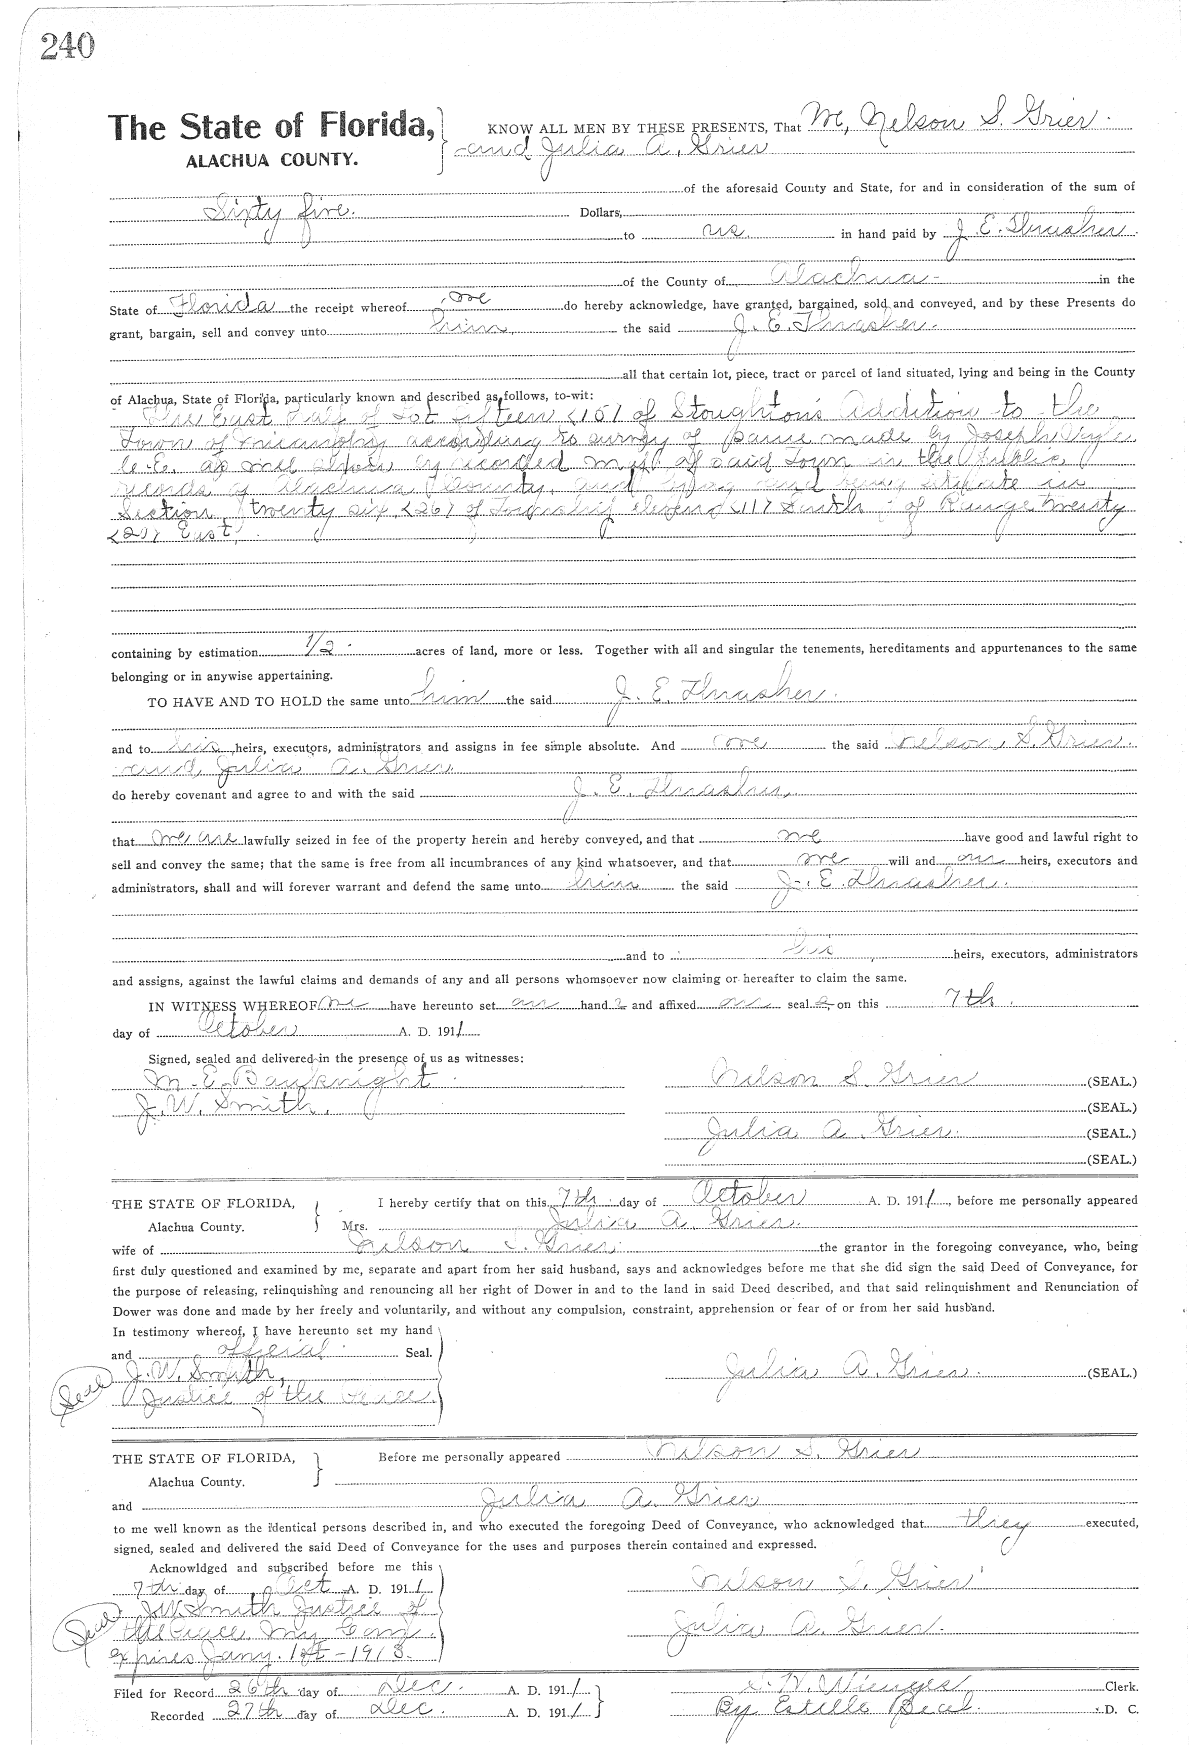 240
The State of Florida, KNOW ALL MEN BY THESE PRESENTS, That We, Nelson S. Grier.
ALACHUA COUNTY. and Julia A. Grier
of the aforesaid County and State, for and in consideration of the sum of
Sixty five. Dollars,
to us. in hand paid by J. E. Thrasher.
of the County of Alachua in the
State of Florida the receipt whereof we do hereby acknowledge, have granted, bargained, sold and conveyed, and by these Presents do
grant, bargain, sell and convey unto him, the said J. E. Thrasher.
all that certain lot, piece, tract or parcel of land situated, lying and being in the County
of Alachua, State of Florida, particularly known and described as follows, to-wit:
The East Half of Lot fifteen <15> of Stoughton's Addition to the
Town of Micanopy according to survey of same made by Joseph
C.E. as recorded map of said Town in the Public
records of Alachua County, and lying and being situate in
Section twenty six <26> of Township eleven <11> South of Range twenty
<20> East.
containing by estimation 1/2 acres of land, more or less. Together with all and singular the tenements, hereditaments and appurtenances to the same
belonging or in anywise appertaining.
TO HAVE AND TO HOLD the same unto him the said J. E. Thrasher.
and to his heirs, executors, administrators and assigns in fee simple absolute. And we the said Nelson, S. Grier
and Julia A. Grier
do hereby covenant and agree to and with the said J. E. Thrasher,
that we are lawfully seized in fee of the property herein and hereby conveyed, and that we have good and lawful right to
sell and convey the same; that the same is free from all incumbrances of any kind whatsoever, and that we will and our heirs, executors and
administrators, shall and will forever warrant and defend the same unto him the said J. E. Thrasher.
and to his heirs, executors, administrators
and assigns, against the lawful claims and demands of any and all persons whomsoever now claiming or hereafter to claim the same.
IN WITNESS WHEREOF we have hereunto set our hand s and affixed our seal s, on this 7th.
day of October A. D. 1911
Signed, sealed and delivered in the presence of us as witnesses:
M. E. Bauknight. Nelson S. Grier (SEAL.)
J. W. Smith. (SEAL.)
Julia A. Grier. (SEAL.)
(SEAL.)
THE STATE OF FLORIDA, I hereby certify that on this 7th day of October A. D. 1911, before me personally appeared
Alachua County. Mrs. Julia A. Grier.
wife of Nelson S. Grier the grantor in the foregoing conveyance, who, being
first duly questioned and examined by me, separate and apart from her said husband, says and acknowledges before me that she did sign the said Deed of Conveyance, for
the purpose of releasing, relinquishing and renouncing all her right of Dower in and to the land in said Deed described, and that said relinquishment and Renunciation of
Dower was done and made by her freely and voluntarily, and without any compulsion, constraint, apprehension or fear of or from her said husband.
In testimony whereof, I have hereunto set my hand
and official Seal.
J. W. Smith, Julia A. Grier. (SEAL.)
Seal Justice of the Peace.
THE STATE OF FLORIDA, Before me personally appeared Nelson S. Grier
Alachua County.
and Julia A. Grier
to me well known as the identical persons described in, and who executed the foregoing Deed of Conveyance, who acknowledged that they executed,
signed, sealed and delivered the said Deed of Conveyance for the uses and purposes therein contained and expressed.
Acknowldged and subscribed before me this
7th day of Oct A. D. 1911 Nelson S. Grier
Seal J. W. Smith Justice of
the Peace. My Com. Julia A. Grier.
expires Jany. 1st - 1913.
Filed for Record 26th day of Dec. A. D. 1911 S. H. Wienges Clerk.
Recorded 27th day of Dec. A. D. 1911 By Estelle Beal. D. C.